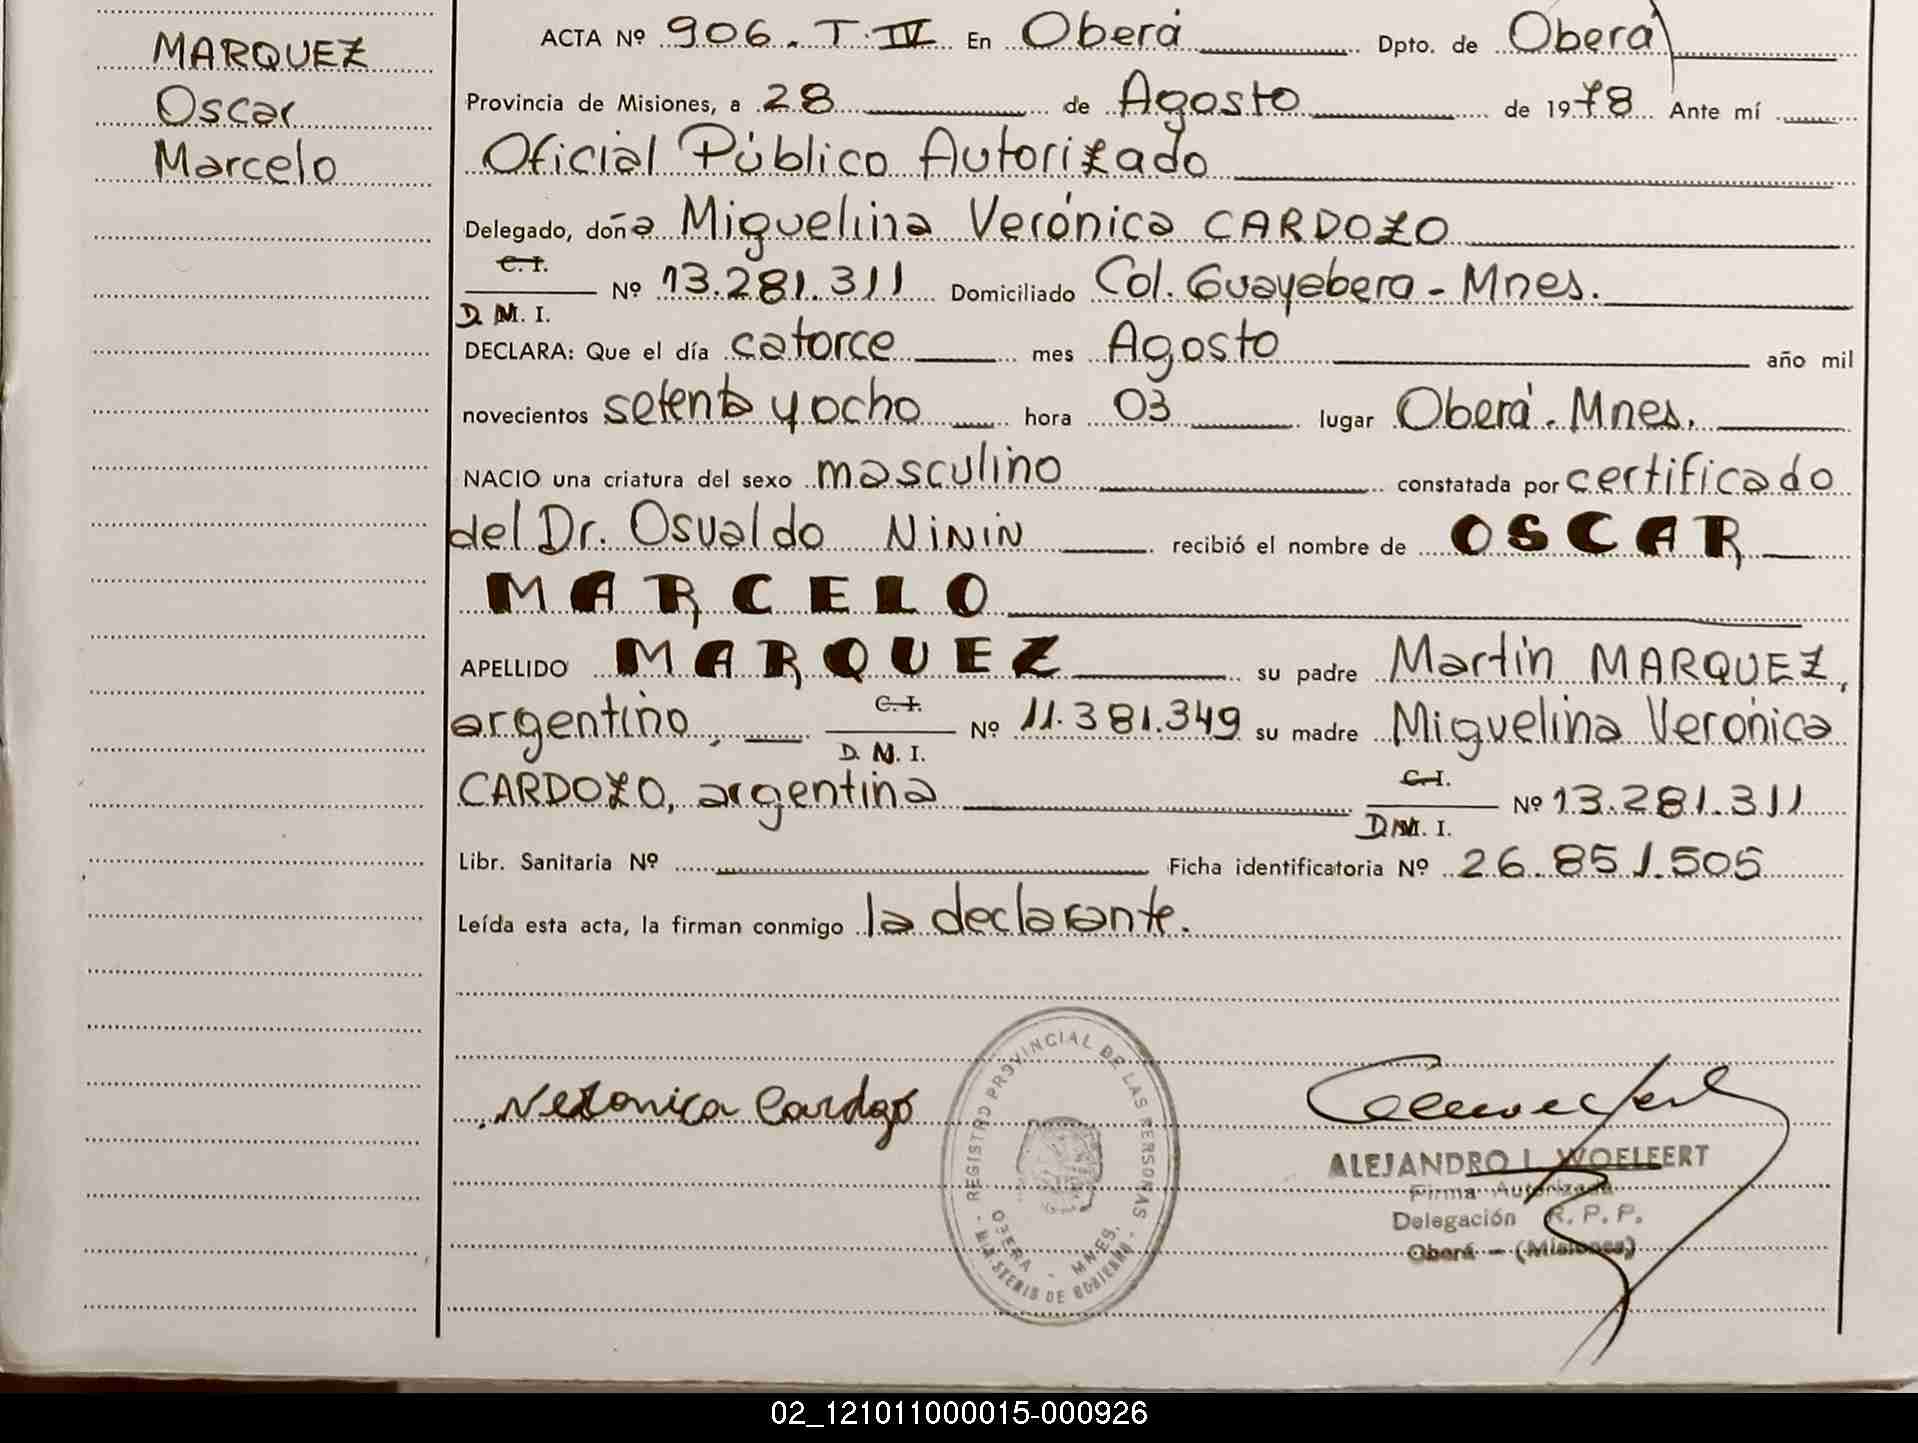 MARQUEZ
Oscar
Marcelo
ACTA Nº 906. T. IV En Oberá Dpto. de Oberá
Provincia de Misiones, a 28 de Agosto de 1978 Ante mí
Oficial Público Autorizado
Delegado, doña Miguelina Verónica CARDOZO
C. I.
Nº 13.281.311 Domiciliado Col. Guayabera - Mnes.
D. N. I.
DECLARA: Que el día catorce mes Agosto año mil
novecientos setenta y ocho hora 03 lugar Oberá. Mnes.
NACIO una criatura del sexo masculino constatada por certificado
del Dr. Osvaldo NININ recibió el nombre de OSCAR
MARCELO
APELLIDO MARQUEZ su padre Martín MARQUEZ,
argentino, C. I. Nº 11.381.349 su madre Miguelina Verónica
D. N. I.
CARDOZO, argentina C. I. Nº 13.281.311
D. N. I.
Libr. Sanitaria Nº Ficha identificatoria Nº 26.851.505
Leída esta acta, la firman conmigo la declarante.
Veronica Cardozo
REGISTRO PROVINCIAL DE LAS PERSONAS
OBERA - MNES.
MINISTERIO DE GOBIERNO
ALEJANDRO L. WOELFERT
Firma Autorizada
Delegación R. P. P.
Oberá - (Misiones)
02_121011000015-000926